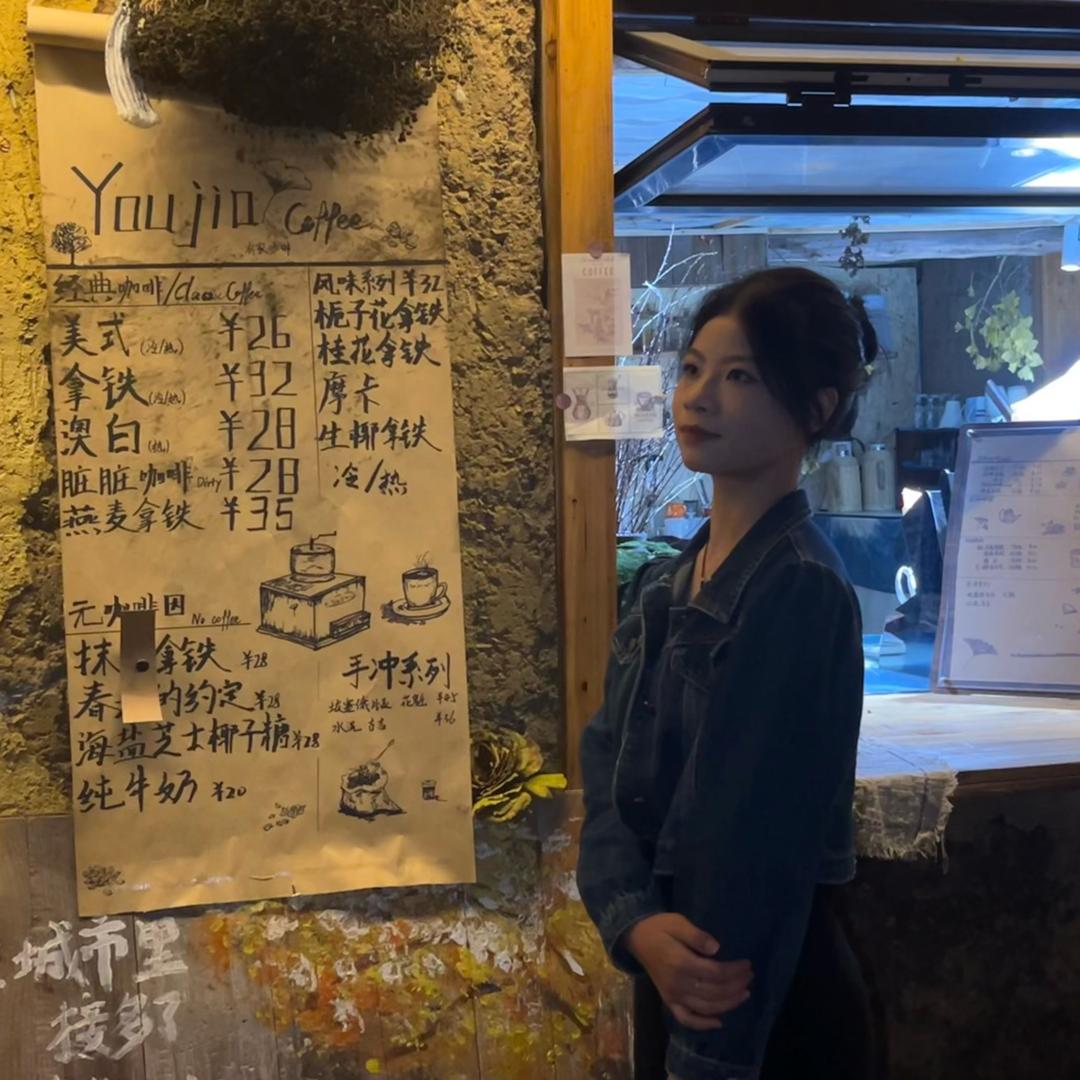 Youjia Coffee
经典咖啡/Classic Coffee
美式(冷/热) ¥26
拿铁(冷/热) ¥32
澳白(热) ¥28
脏脏咖啡Dirty ¥28
燕麦拿铁 ¥35
风味系列 ¥32
栀子花拿铁
桂花拿铁
摩卡
生椰拿铁
冷/热
无咖啡因 No coffee
抹 拿铁 ¥28
春 的约定 ¥28
海盐芝士椰子糖 ¥28
纯牛奶 ¥20
手冲系列
花魁 ¥45
COFFEE
城市里
接多了